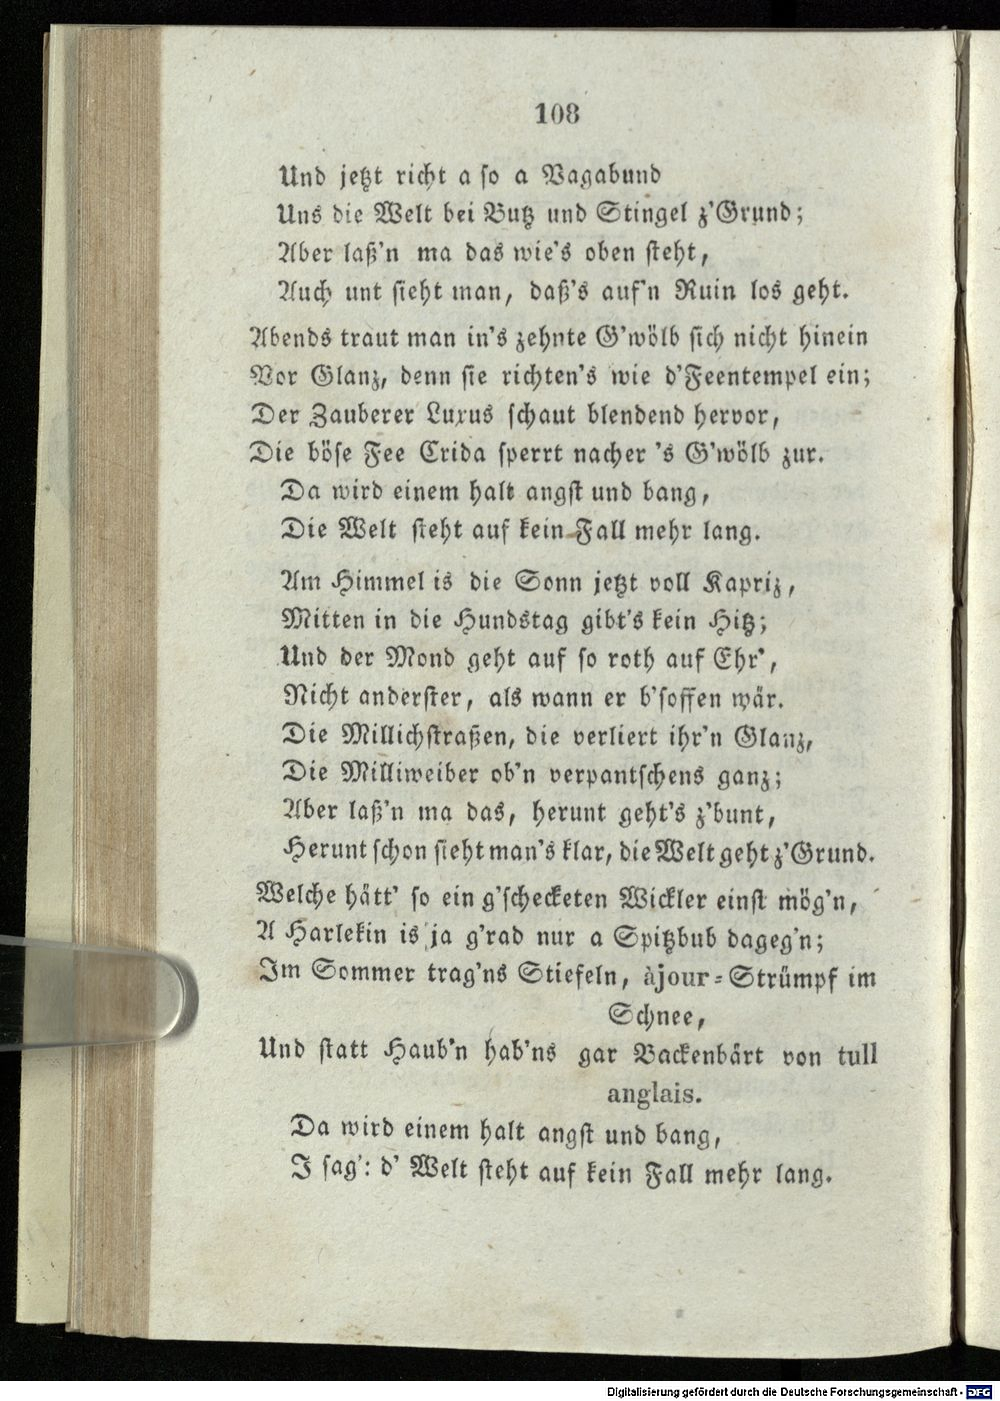 108
Und jetzt richt a so a Vagabund
Uns die Welt bei Butz und Stingel z'Grund;
Aber laß'n ma das wie's oben steht,
Auch unt sieht man, daß's auf'n Ruin los geht.
Abends traut man in's zehnte G'wölb sich nicht hinein
Vor Glanz, denn sie richten's wie d'Feentempel ein;
Der Zauberer Luxus schaut blendend hervor,
Die böse Fee Crida sperrt nacher 's G'wölb zur.
Da wird einem halt angst und bang,
Die Welt steht auf kein Fall mehr lang.
Am Himmel is die Sonn jetzt voll Kapriz,
Mitten in die Hundstag gibt's kein Hitz;
Und der Mond geht auf so roth auf Ehr',
Nicht anderster, als wann er b'soffen wär.
Die Millichstraßen, die verliert ihr'n Glanz,
Die Milliweiber ob'n verpantschens ganz;
Aber laß'n ma das, herunt geht's z'bunt,
Herunt schon sieht man's klar, die Welt geht z'Grund.
Welche hätt' so ein g'schecketen Wickler einst mög'n,
A Harlekin is ja g'rad nur a Spitzbub dageg'n;
Im Sommer trag'ns Stiefeln, àjour-Strümpf im
Schnee,
Und statt Haub'n hab'ns gar Backenbärt von tull
anglais.
Da wird einem halt angst und bang,
I sag': d' Welt steht auf kein Fall mehr lang.
Digitalisierung gefördert durch die Deutsche Forschungsgemeinschaft - DFG